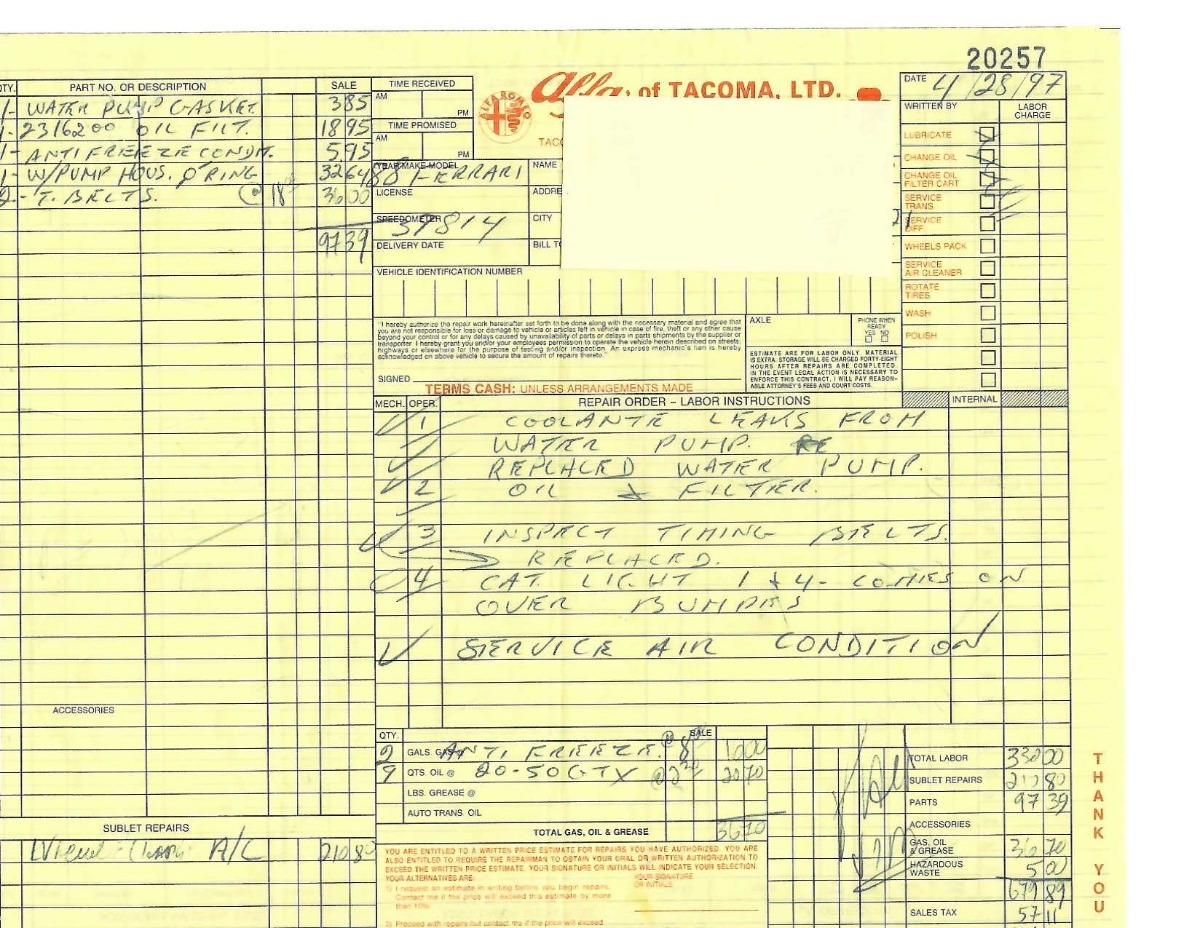 20257
Alfa of TACOMA, LTD.
ALFA ROMEO
TACO
DATE 4/28/97
QTY. PART NO. OR DESCRIPTION SALE
1- WATER PUMP GASKET. 3 85
1- 2316200 OIL FILT. 18 95
1- ANTIFREEZE CONDIT. 5 95
1- W/PUMP HOUS. O'RING 32 64
2- T. BELTS. @ 18 36 00
97 39
TIME RECEIVED
AM PM
TIME PROMISED
AM PM
YEAR-MAKE-MODEL 88 FERRARI
LICENSE
SPEEDOMETER 37814
DELIVERY DATE
NAME
ADDRE
CITY
BILL TO
VEHICLE IDENTIFICATION NUMBER
WRITTEN BY LABOR CHARGE
LUBRICATE
CHANGE OIL
CHANGE OIL FILTER CART
SERVICE TRANS
SERVICE DIFF
WHEELS PACK
SERVICE AIR CLEANER
ROTATE TIRES
WASH
POLISH
"I hereby authorize the repair work hereinafter set forth to be done along with the necessary material and agree that
you are not responsible for loss or damage to vehicle or articles left in vehicle in case of fire, theft or any other cause
beyond your control or for any delays caused by unavailability of parts or delays in parts shipments by the supplier or
transporter. I hereby grant you and/or your employees permission to operate the vehicle herein described on streets,
highways or elsewhere for the purpose of testing and/or inspection. An express mechanic's lien is hereby
acknowledged on above vehicle to secure the amount of repairs thereto."
SIGNED
TERMS CASH: UNLESS ARRANGEMENTS MADE
AXLE
PHONE WHEN READY
YES NO
ESTIMATE ARE FOR LABOR ONLY. MATERIAL
IS EXTRA. STORAGE WILL BE CHARGED FORTY-EIGHT
HOURS AFTER REPAIRS ARE COMPLETED
IN THE EVENT LEGAL ACTION IS NECESSARY TO
ENFORCE THIS CONTRACT, I WILL PAY REASON-
ABLE ATTORNEY'S FEES AND COURT COSTS.
MECH. OPER. REPAIR ORDER – LABOR INSTRUCTIONS INTERNAL
1 COOLANTE LEAKS FROM
WATER PUMP. RE
REPLACED WATER PUMP.
2 OIL & FILTER.
3 INSPECT TIMING BELTS.
REPLACED.
4 CAT. LIGHT 1 & 4- COMES ON
OVER BUMPES
SERVICE AIR CONDITION
ACCESSORIES
QTY. SALE
2 GALS. GAS ANTI FREEZE. @ 8
9 QTS. OIL @ 20-50 GTX 20 70
LBS. GREASE @
AUTO TRANS. OIL
TOTAL GAS, OIL & GREASE 36 70
SUBLET REPAIRS
A/C 210 80
YOU ARE ENTITLED TO A WRITTEN PRICE ESTIMATE FOR REPAIRS YOU HAVE AUTHORIZED. YOU ARE
ALSO ENTITLED TO REQUIRE THE REPAIRMAN TO OBTAIN YOUR ORAL OR WRITTEN AUTHORIZATION TO
EXCEED THE WRITTEN PRICE ESTIMATE. YOUR SIGNATURE OR INITIALS WILL INDICATE YOUR SELECTION.
YOUR ALTERNATIVES ARE:
YOUR SIGNATURE OR INITIALS
1) I request an estimate in writing before you begin repairs.
Contact me if the price will exceed this estimate by more
than 10%.
2) Proceed with repairs but contact me if the price will exceed
TOTAL LABOR 330 00
SUBLET REPAIRS 210 80
PARTS 97 39
ACCESSORIES
GAS, OIL & GREASE 36 70
HAZARDOUS WASTE 5 00
679 89
SALES TAX 57 11
THANK YOU